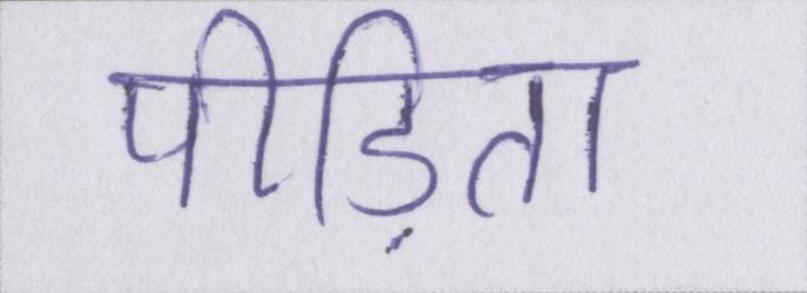 पीड़िता